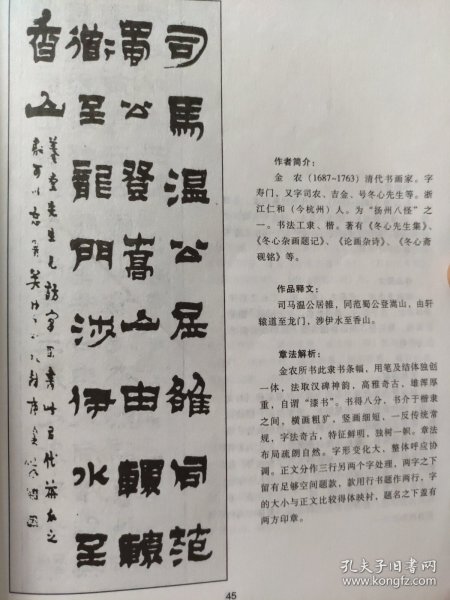 司馬温公居雒同范
蜀公登嵩山由轘轅
道至龍門涉伊水至
香山
作者简介：
金 农（1687~1763）清代书画家。字
寿门，又字司农、吉金、号冬心先生等。浙
江仁和（今杭州）人。为“扬州八怪”之
一。书法工隶、楷。著有《冬心先生集》、
《冬心杂画题记》、《论画杂诗》、《冬心斋
砚铭》等。
作品释文：
司马温公居雒，同范蜀公登嵩山，由轩
辕道至龙门，涉伊水至香山。
章法解析：
金农所书此隶书条幅，用笔及结体独创
一体，法取汉碑神韵，高雅奇古，雄浑厚
重，自谓“漆书”。书得八分，书介于楷隶
之间，横画粗犷，竖画细短，一反传统常
规，字法奇古，特征鲜明，独树一帜。章法
布局疏朗自然。字形变化大，整体呼应协
调。正文分作三行另两个字处理，两字之下
留有足够空间题款，款用行书题作两行，字
的大小与正文比较得体映衬，题名之下盖有
两方印章。
45
孔夫子旧书网
www.kongfz.com